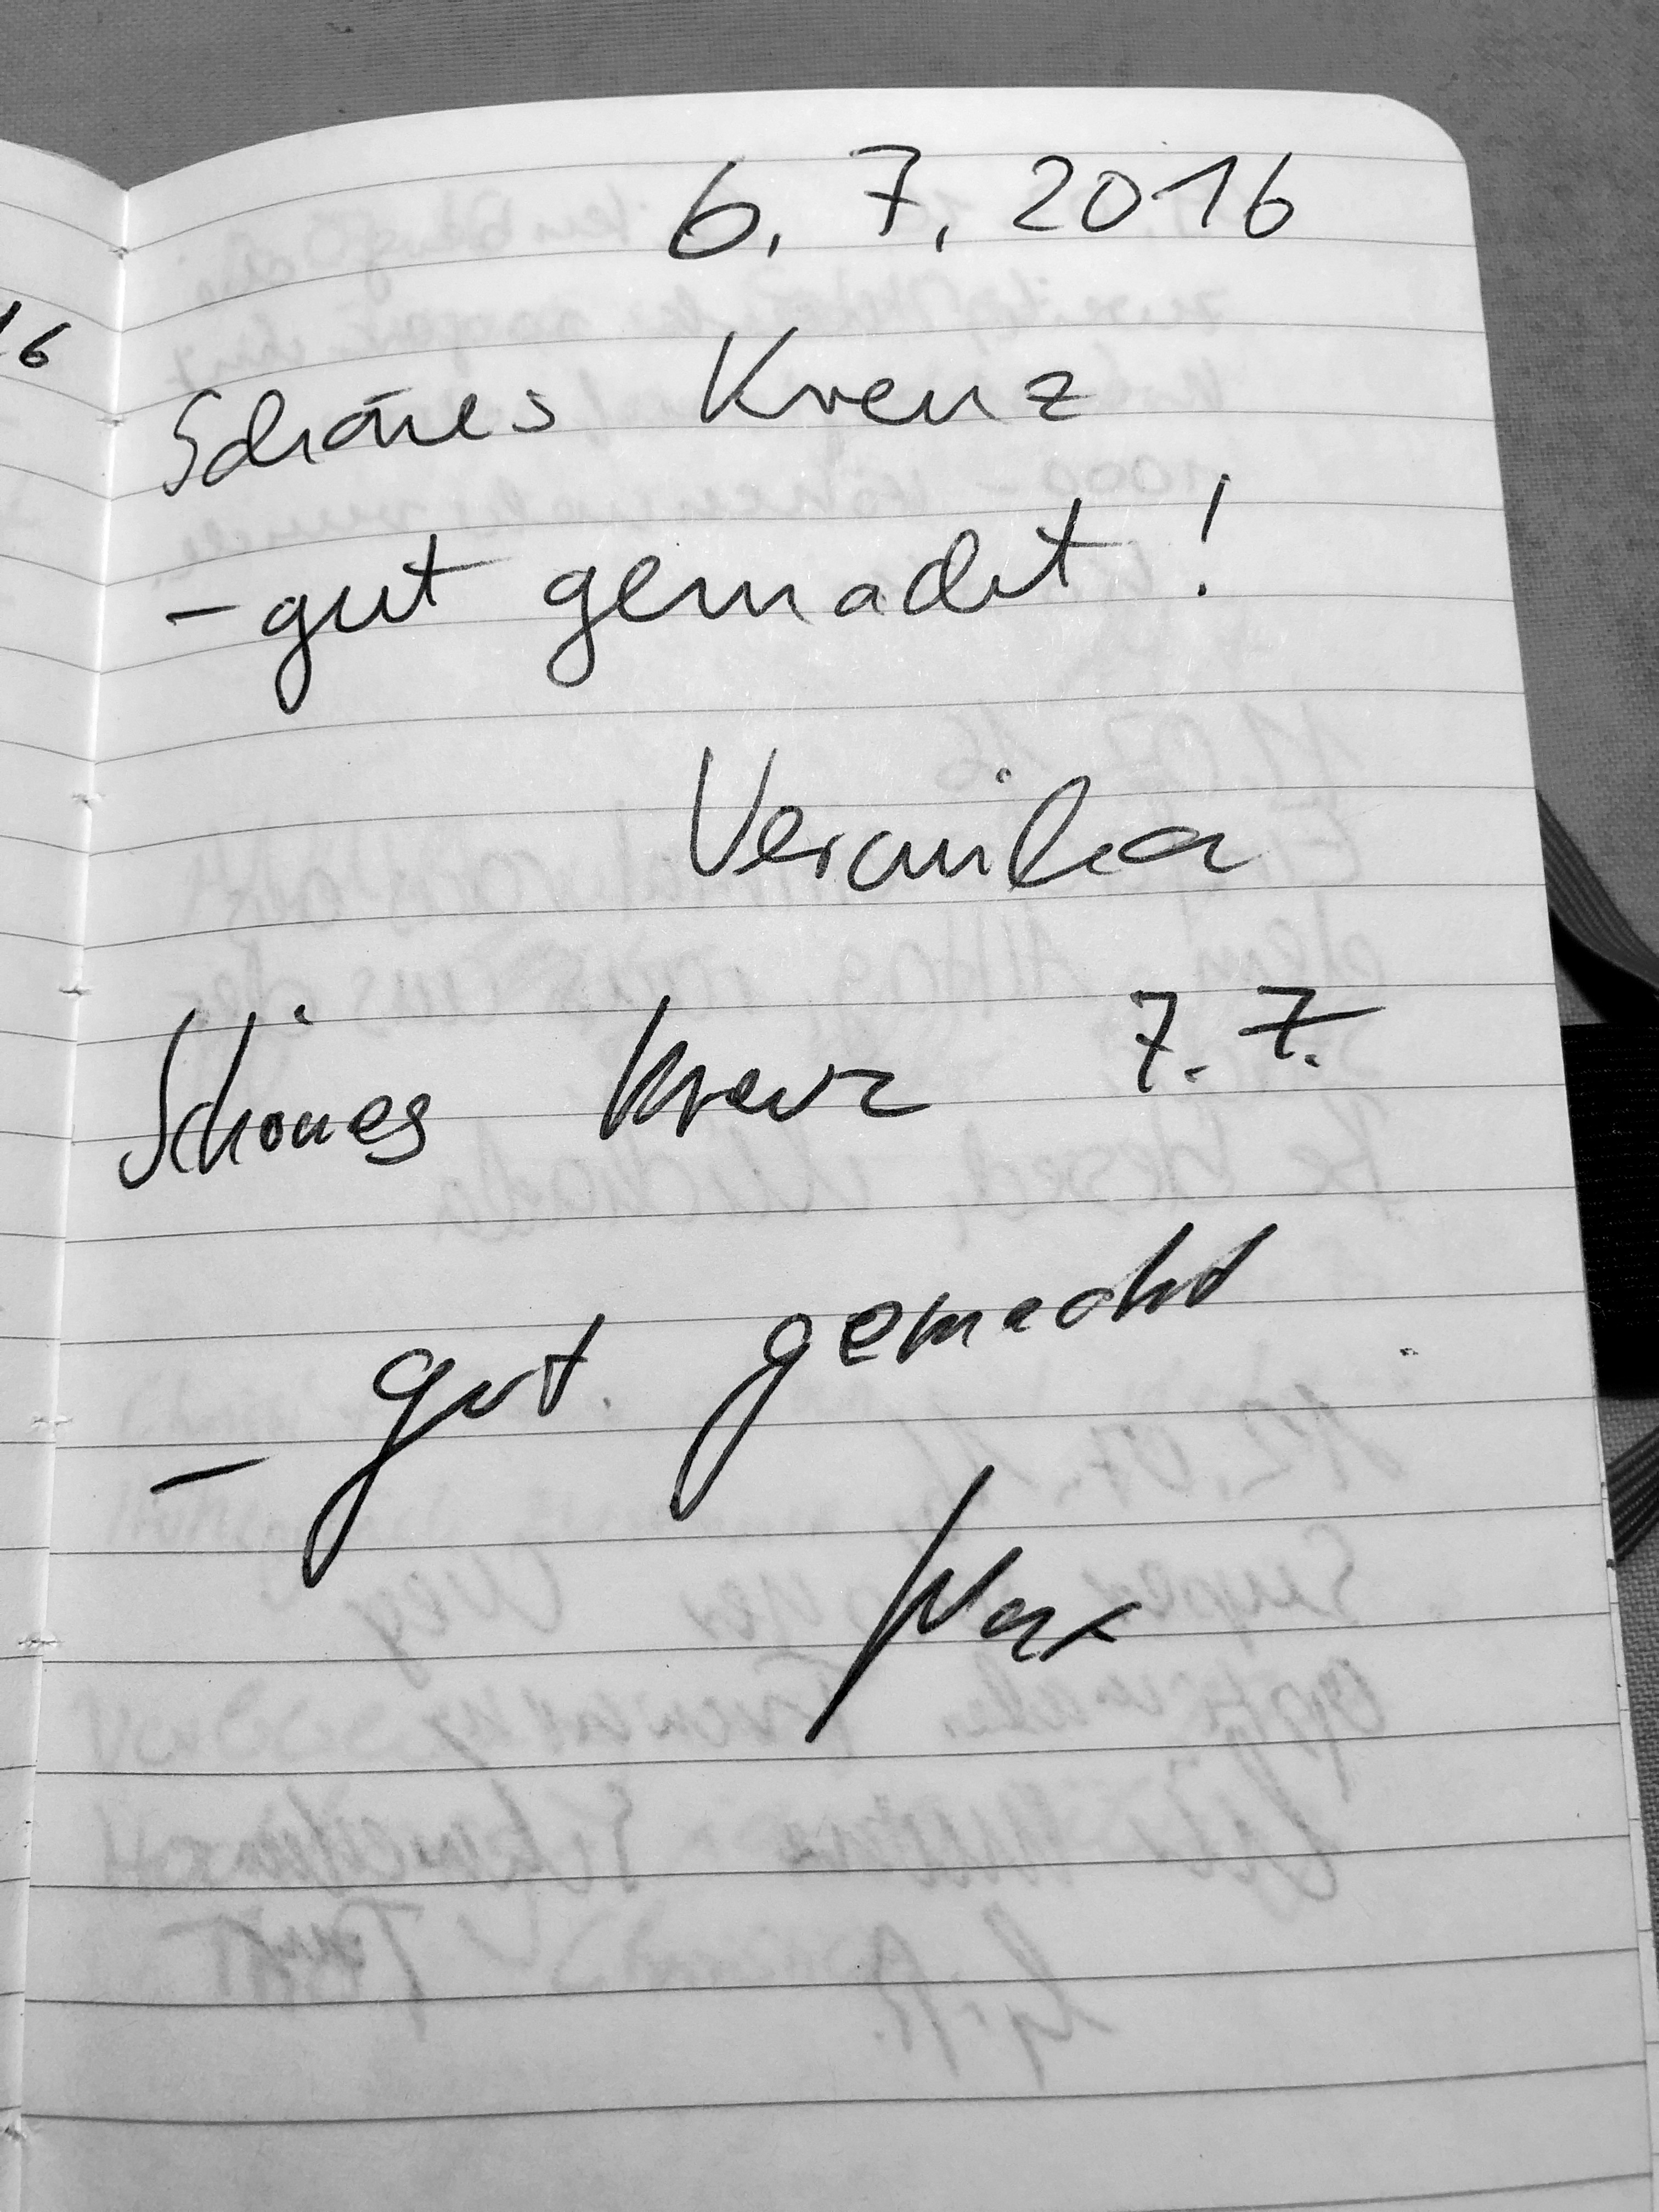 6. 7. 2016
Schönes Kreuz
- gut gemacht!
Veronika
Schönes Kreuz 7. 7.
- gut gemacht
16